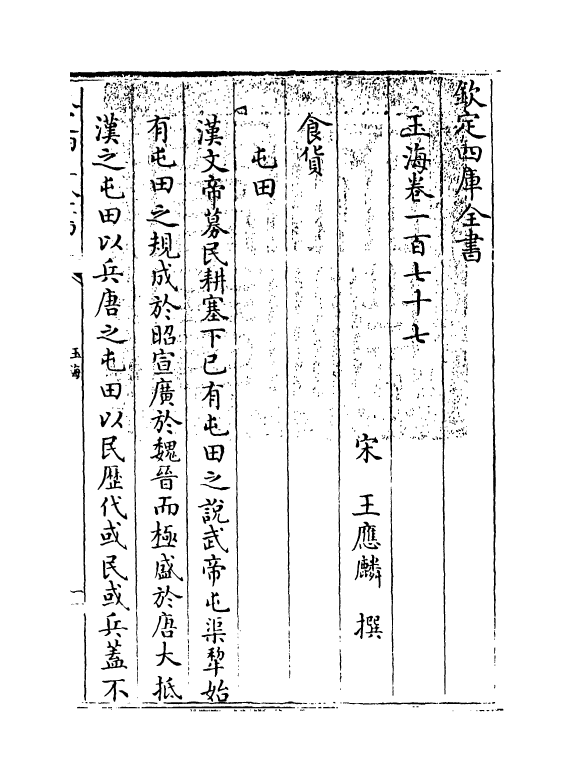 欽定四庫全書
玉海卷一百七十七
宋 王應麟 撰
食貨
屯田
漢文帝募民耕塞下已有屯田之說武帝屯渠犂始
有屯田之規成於昭宣廣於魏晉而極盛於唐大抵
漢之屯田以兵唐之屯田以民歷代或民或兵蓋不
玉海